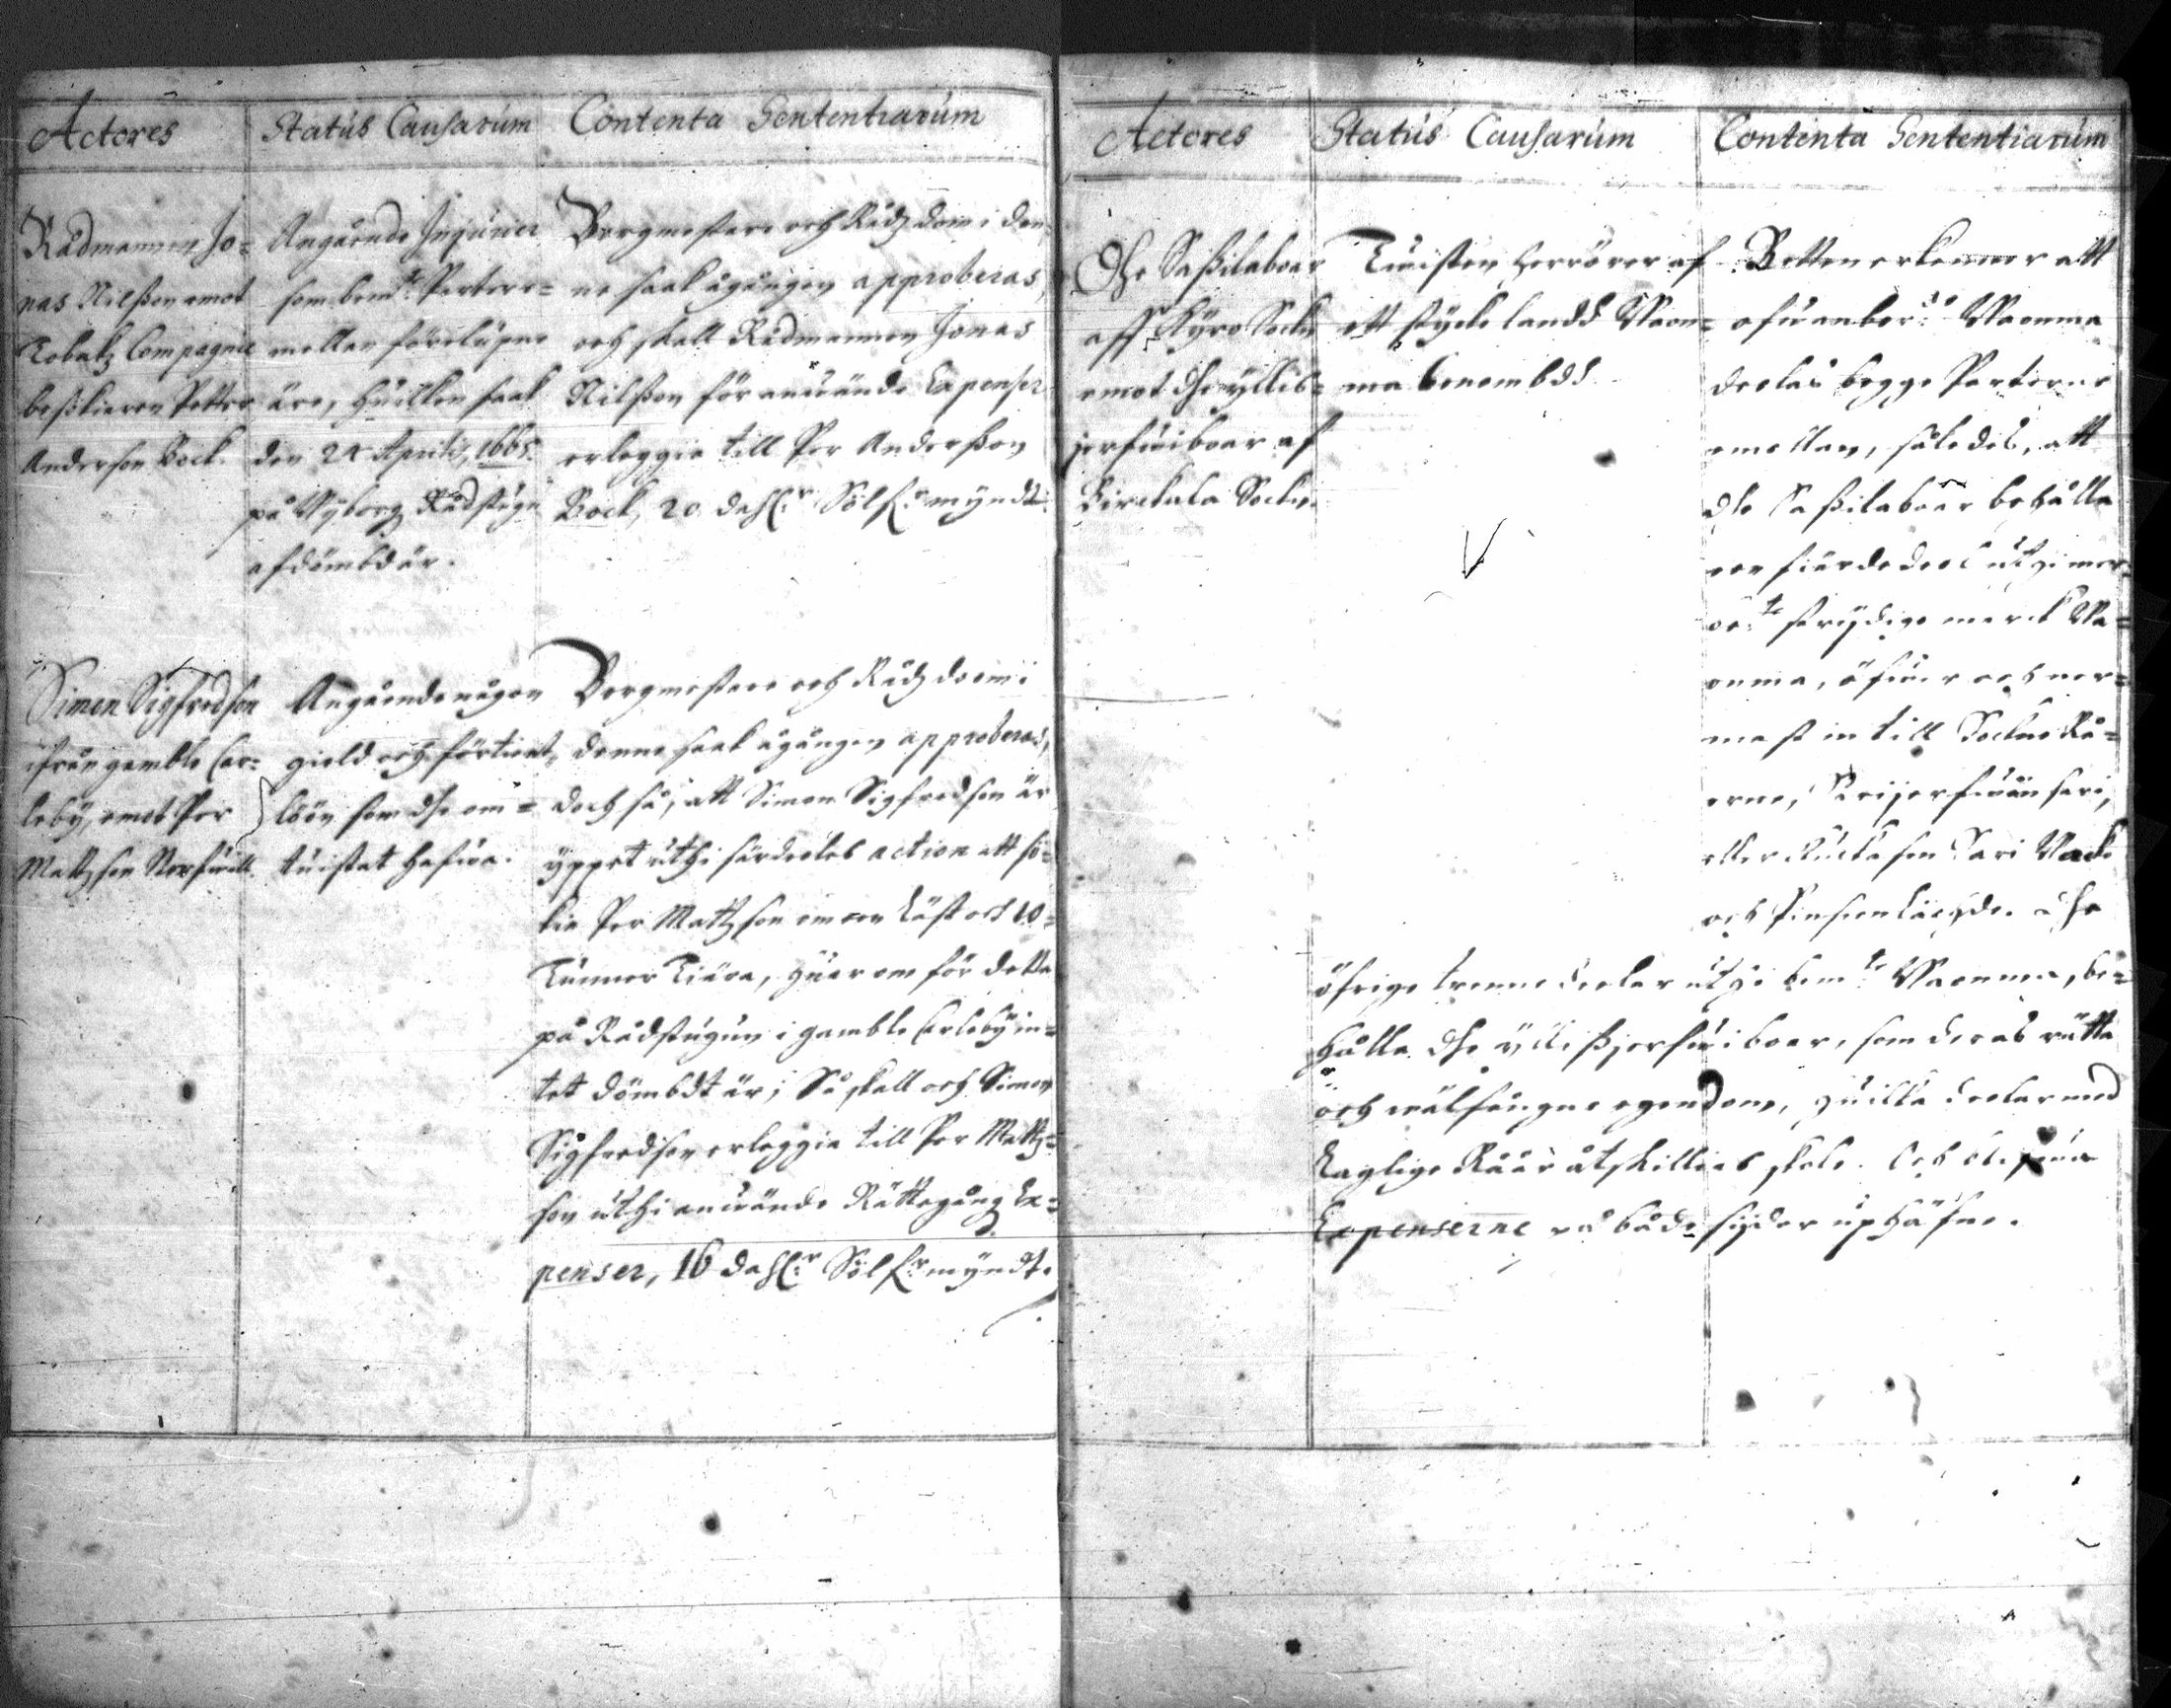 Actores
Status Causarum
Contenta Sententiarum
Rådmannen Jo=
nas Nilsson emot
Tobakz Compagnie
besökieren Petter
Anderson Bock.
Angående Injurier
som bem:te Parter e=
mellan förelupne
äre, huilken saak
den 24 Aprilis, 1665.
på Wyborg Rådstugu
afdömbd är.
Borgmestare och Rådz dom i den
ne saak ågången approberas,
och skall Rådmannen Jonas
Nilsson för anwände Expenser
erleggia till Per Andersson
Bock, 20 dahl:r Sölf:r myndt.
Simon Sigfredson
ifrån gamble Car=
leby, emot Per
Mattzson
Angående någon
gield och förtient
löön som dhe om=
tuistat hafua.
Borgmestare och Rådz doom i
denne saak ågången approberas,
doch så, att Simon Sigfredson är
öppet uthi särdeeles action att sö=
kia Per Mattzson om een Läst och 10
Tunnor Tiära, huar om för detta
på Rådstugun i gamble Carleby in=
tet dömbdt är; Så skall och Simon
Sigfredson erleggia till Per Mattz=
son uthi anwände Rättegångz Ex=
penser, 16 dahl:r Sölf:r myndt.
Actores
Status Causarum
Contenta Sententiarum
Dhe Sassilaboar
aff Kyro Sochn
emot dhe yllis=
jerfwiboar af
Birckala Sochn.
Tuisten herrörer af
ett stycke landh Maon=
ma benembdh
Retten erkenner att
ofuanber:de Maonma
deelas begge Parterne
emellan, således, att
dhe Sassilaboar behålla
een fierdedeel uthi mer
be:te stridige marck Ma=
onma, öfuer och ner=
mast in till Sochne Rå=
erne,
eller
och dhe
öfrige trenne deelar uthi bem:te Maonma, be=
hålla dhe yllissjerfwiboar, som deras rätta
och wälfångne egendom, huilka deelar med
Laglige Råår åtskillias skole. Och blifua
Expenserne på både sijdor uphäfne.